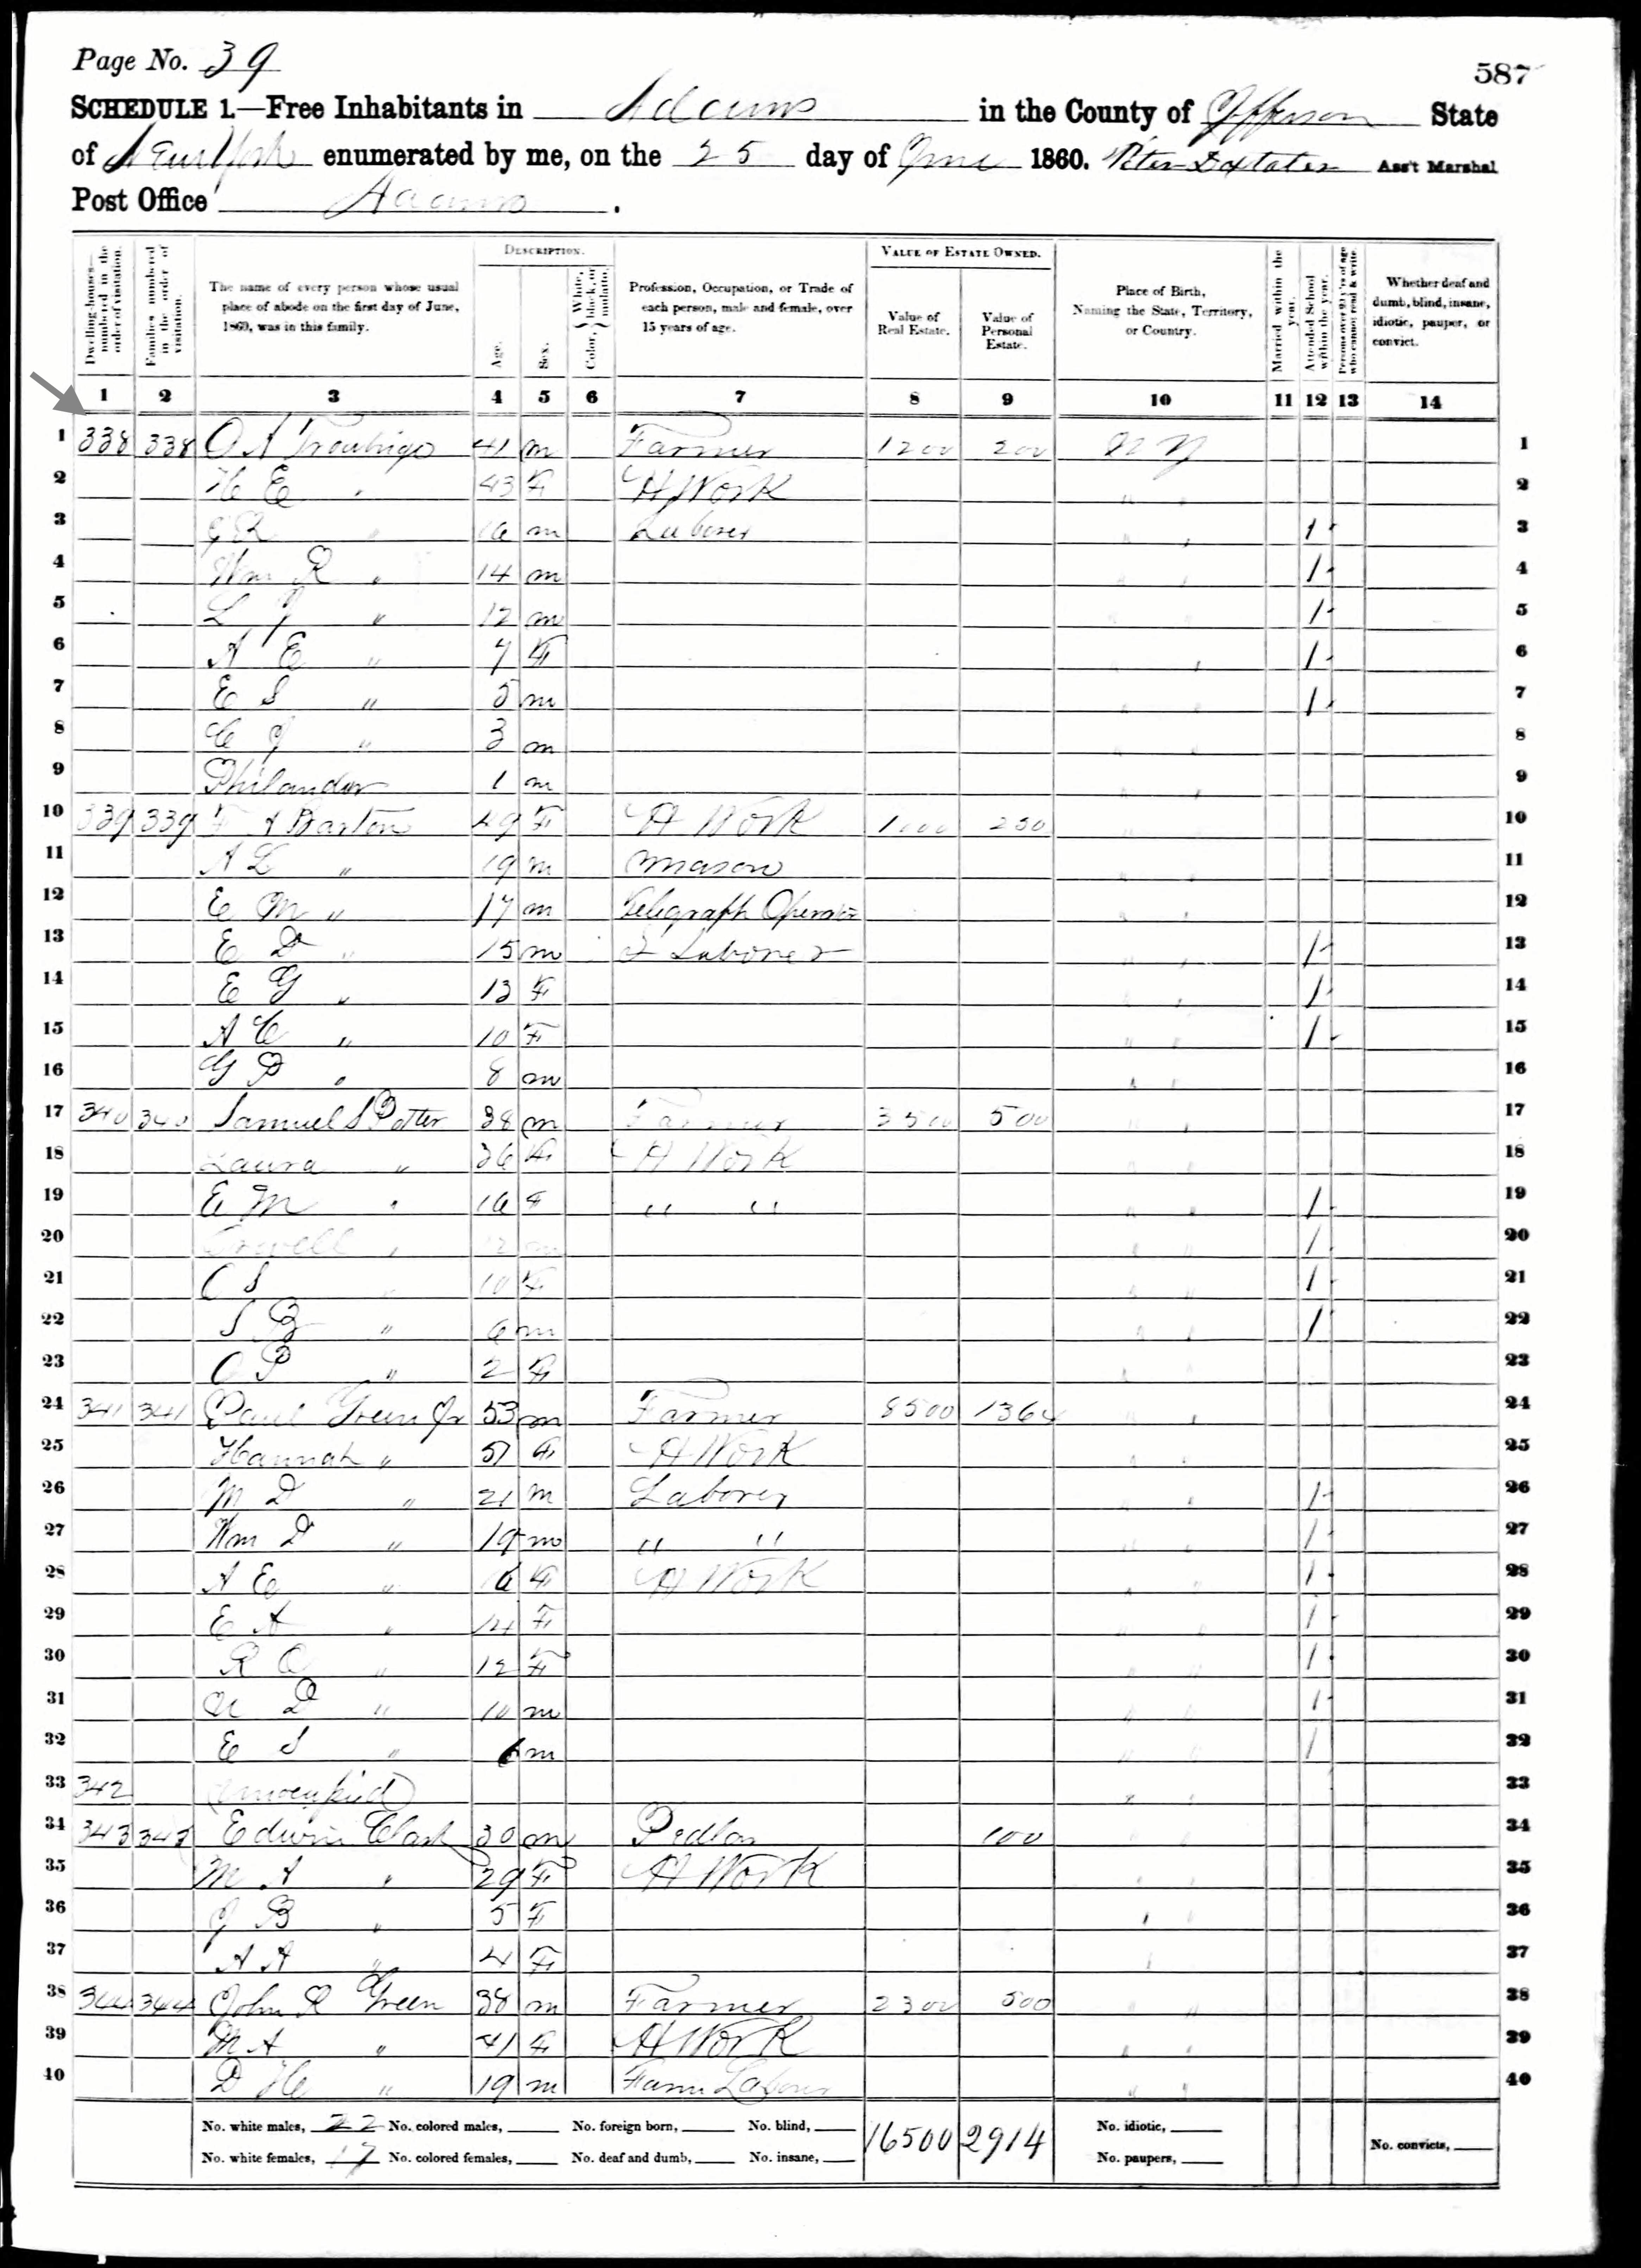 Page No. 39
587
SCHEDULE 1.—Free Inhabitants in Adams in the County of Jefferson State
of New York enumerated by me, on the 25 day of June 1860. Peter Ass't Marshal
Post Office Adams .
DESCRIPTION. VALUE OF ESTATE OWNED.
Dwelling-houses—numbered in the order of visitation.
Families numbered in the order of visitation.
The name of every person whose usual place of abode on the first day of June, 1860, was in this family.
Age.
Sex.
Color, { White, black, or mulatto.
Profession, Occupation, or Trade of each person, male and female, over 15 years of age.
Value of Real Estate.
Value of Personal Estate.
Place of Birth, Naming the State, Territory, or Country.
Married within the year.
Attended School within the year.
Persons over 20 y'rs of age who cannot read & write.
Whether deaf and dumb, blind, insane, idiotic, pauper, or convict.
1 2 3 4 5 6 7 8 9 10 11 12 13 14
1 338 338 O A 41 m Farmer 1200 200 N Y 1
2 H E " 43 F H Work " " 2
3 " 16 m Laborer " " 1 3
4 Wm R " 14 m " " 1 4
5 L J " 12 m " " 1 5
6 A E " 7 F " " 1 6
7 E S " 5 m " " 1 7
8 C J " 3 m " " 8
9 Philander 1 m " " 9
10 339 339 F A Barton 49 F H Work 1000 250 " " 10
11 A L " 19 m Mason " " 11
12 E M " 17 m Telegraph Operator " " 12
13 E D " 15 m Laborer " " 1 13
14 E G " 13 F " " 1 14
15 A C " 10 F " " 1 15
16 G P " 8 m " " 16
17 340 340 Samuel S Potter 38 m Farmer 3500 500 " " 17
18 Laura " 36 F H Work " " 18
19 E M " 16 F " " " " 1 19
20 " 12 m " " 1 20
21 O S " 10 F " " 1 21
22 S B " 6 m " " 1 22
23 O P " 2 F " " 23
24 341 341 Paul Green Jr 53 m Farmer 8500 1364 " " 24
25 Hannah " 51 F H Work " " 25
26 M D " 21 m Laborer " " 1 26
27 Wm D " 19 m " " " " 1 27
28 A E " 16 F H Work " " 1 28
29 E A " 14 F " " 1 29
30 R O " 12 F " " 1 30
31 D " 10 m " " 1 31
32 E S " 6 m " " 1 32
33 342 (Unoccupied) " " 33
34 343 343 Edwin Clark 30 m Pedlar 100 " " 34
35 M A " 29 F H Work " " 35
36 J B " 5 F " " 36
37 A A " 4 F " 37
38 344 344 John R Green 38 m Farmer 2300 500 " " 38
39 M A " 41 F H Work " " 39
40 D H " 19 m Farm Laborer " " 40
No. white males, 22 No. colored males, No. foreign born, No. blind, 16500 2914 No. idiotic,
No. white females, 17 No. colored females, No. deaf and dumb, No. insane, No. paupers, No. convicts,